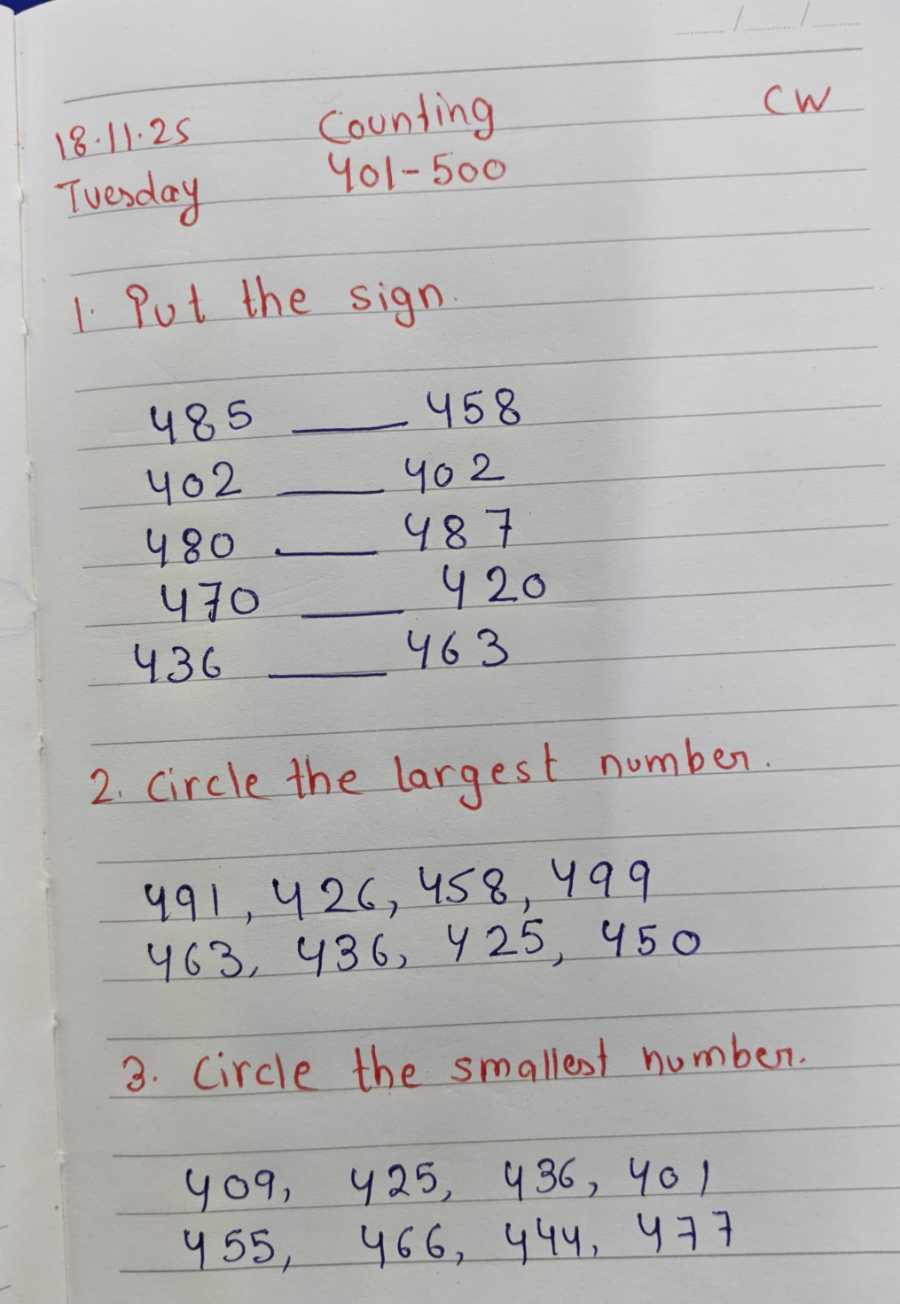 18.11.25 Counting CW
Tuesday 401-500
1. Put the sign.
485 ____ 458
402 ____ 402
480 ____ 487
470 ____ 420
436 ____ 463
2. Circle the largest number.
491, 426, 458, 499
463, 436, 425, 450
3. Circle the smallest number.
409, 425, 436, 401
455, 466, 444, 477